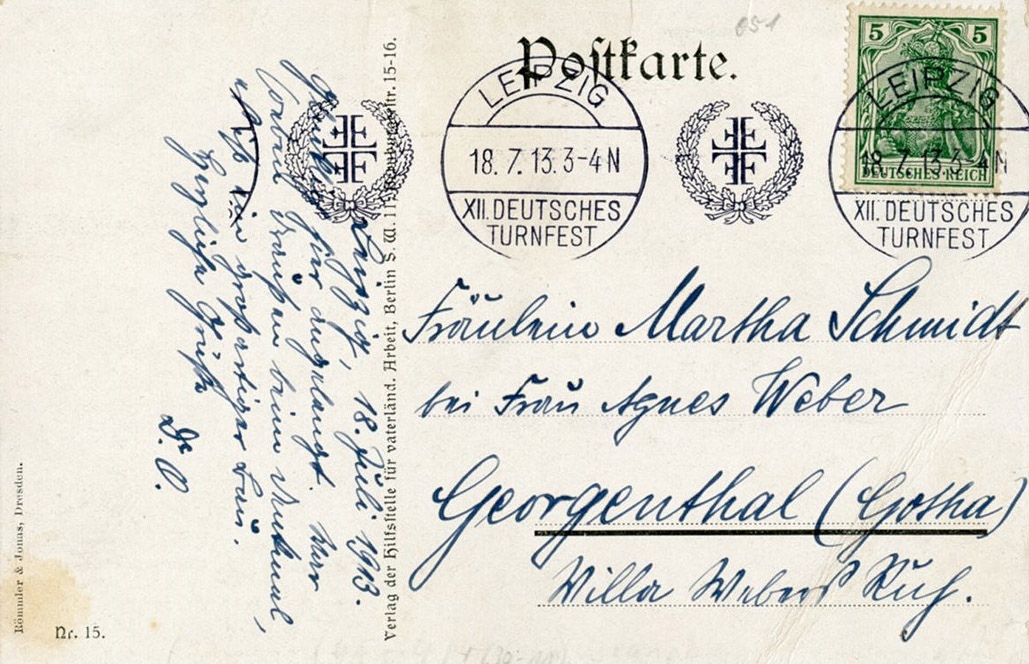 Postkarte.
051
5 5
DEUTSCHES REICH
LEIPZIG
18.7.13.3-4N
XII. DEUTSCHES
TURNFEST
LEIPZIG
18.7.13.3-4N
XII. DEUTSCHES
TURNFEST
Leipzig, 18. Juli 1913.
hier angelangt.
Vorbei draußen beim Denkmal,
ist ein großartiger Bau.
Herzliche Grüße
D. O.
Fräulein Martha Schmidt
bei Frau Agnes Weber
Georgenthal (Gotha)
Villa Webers Ruh.
Verlag der Hilfsstelle für vaterländ. Arbeit, Berlin S. W. 11 15-16.
Römmler & Jonas, Dresden.
Nr. 15.